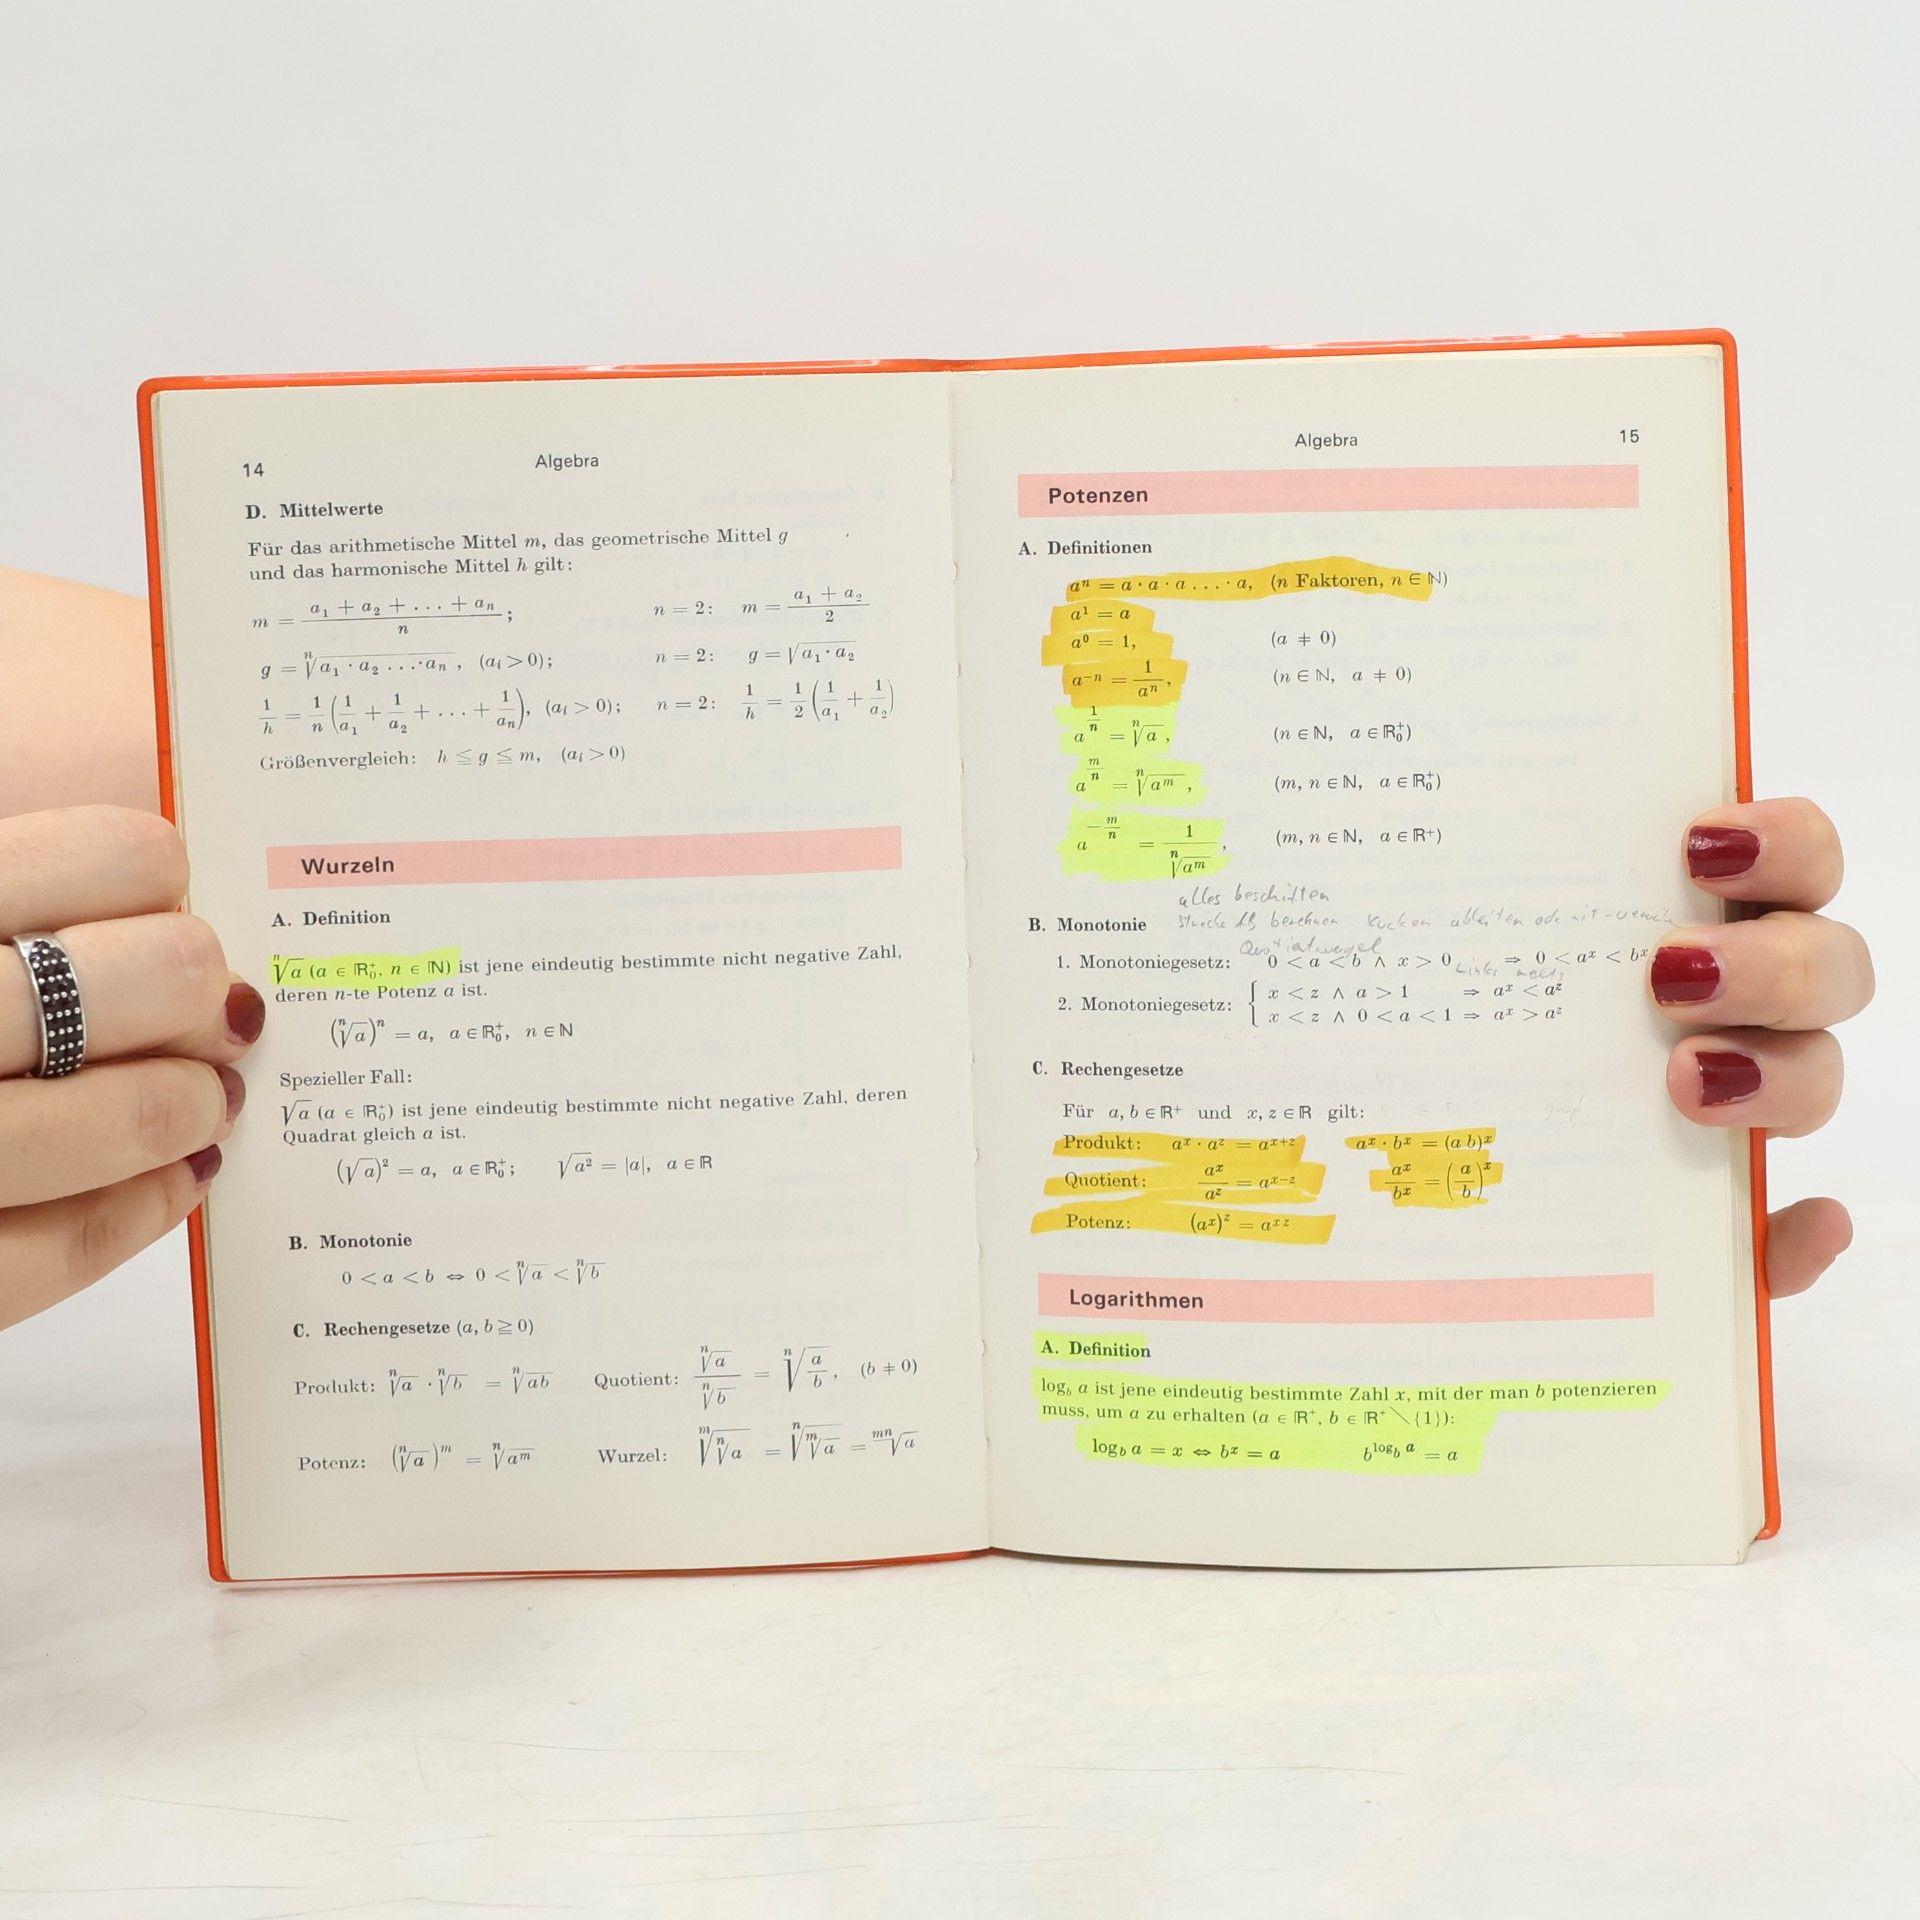 14
Algebra
D. Mittelwerte
Für das arithmetische Mittel m, das geometrische Mittel g
und das harmonische Mittel h gilt:
m = (a₁ + a₂ + . . . + aₙ)/n ; n = 2: m = (a₁ + a₂)/2
g = ⁿ√(a₁ · a₂ . . . · aₙ) , (aᵢ > 0); n = 2: g = √(a₁ · a₂)
1/h = 1/n (1/a₁ + 1/a₂ + . . . + 1/aₙ), (aᵢ > 0); n = 2: 1/h = 1/2 (1/a₁ + 1/a₂)
Größenvergleich: h ≦ g ≦ m, (aᵢ > 0)
Wurzeln
A. Definition
ⁿ√a (a ∈ ℝ₀⁺, n ∈ ℕ) ist jene eindeutig bestimmte nicht negative Zahl,
deren n-te Potenz a ist.
(ⁿ√a)ⁿ = a, a ∈ ℝ₀⁺, n ∈ ℕ
Spezieller Fall:
√a (a ∈ ℝ₀⁺) ist jene eindeutig bestimmte nicht negative Zahl, deren
Quadrat gleich a ist.
(√a)² = a, a ∈ ℝ₀⁺; √a² = |a|, a ∈ ℝ
B. Monotonie
0 < a < b ⇔ 0 < ⁿ√a < ⁿ√b
C. Rechengesetze (a, b ≧ 0)
Produkt: ⁿ√a · ⁿ√b = ⁿ√ab Quotient: ⁿ√a / ⁿ√b = ⁿ√(a/b), (b ≠ 0)
Potenz: (ⁿ√a)ᵐ = ⁿ√aᵐ Wurzel: ᵐ√ⁿ√a = ⁿ√ᵐ√a = ᵐⁿ√a
Algebra
15
Potenzen
A. Definitionen
aⁿ = a · a · a . . . . · a, (n Faktoren, n ∈ ℕ)
a¹ = a
a⁰ = 1, (a ≠ 0)
a⁻ⁿ = 1/aⁿ, (n ∈ ℕ, a ≠ 0)
a^(1/n) = ⁿ√a , (n ∈ ℕ, a ∈ ℝ₀⁺)
a^(m/n) = ⁿ√aᵐ , (m, n ∈ ℕ, a ∈ ℝ₀⁺)
a^(−m/n) = 1/ⁿ√aᵐ, (m, n ∈ ℕ, a ∈ ℝ⁺)
alles beschriften
B. Monotonie
1. Monotoniegesetz: 0 < a < b ∧ x > 0 ⇒ 0 < aˣ < bˣ
2. Monotoniegesetz: { x < z ∧ a > 1 ⇒ aˣ < aᶻ
x < z ∧ 0 < a < 1 ⇒ aˣ > aᶻ
C. Rechengesetze
Für a, b ∈ ℝ⁺ und x, z ∈ ℝ gilt:
Produkt: aˣ · aᶻ = aˣ⁺ᶻ aˣ · bˣ = (a b)ˣ
Quotient: aˣ/aᶻ = aˣ⁻ᶻ aˣ/bˣ = (a/b)ˣ
Potenz: (aˣ)ᶻ = aˣ ᶻ
Logarithmen
A. Definition
log_b a ist jene eindeutig bestimmte Zahl x, mit der man b potenzieren
muss, um a zu erhalten (a ∈ ℝ⁺, b ∈ ℝ⁺ \ {1}):
log_b a = x ⇔ bˣ = a b^(log_b a) = a